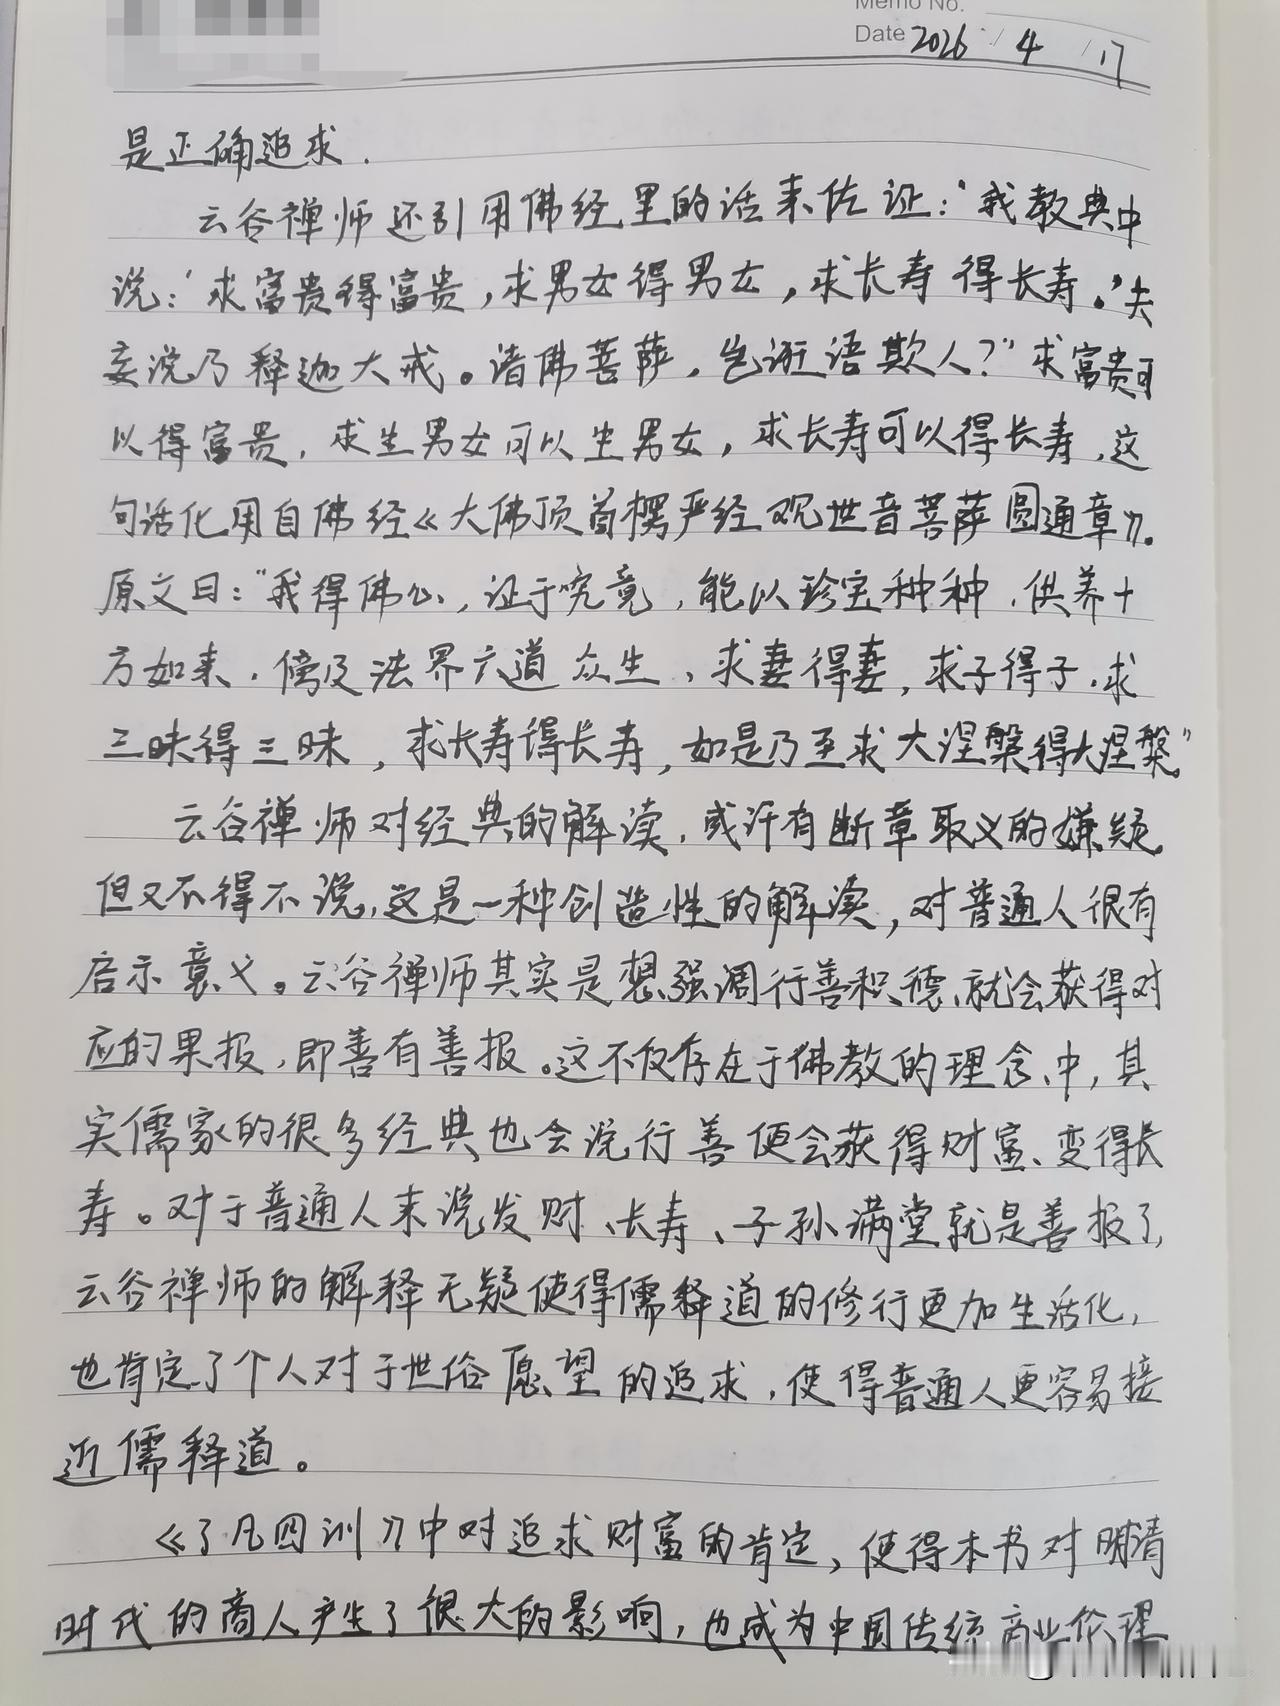 Memo No.
Date 2026 / 4 / 17
是正确追求.
云谷禅师还引用佛经里的话来佐证:“我教典中
说:‘求富贵得富贵,求男女得男女,求长寿得长寿。’夫
妄说乃释迦大戒。诸佛菩萨,岂诳语欺人?”求富贵可
以得富贵,求生男女可以生男女,求长寿可以得长寿,这
句话化用自佛经《大佛顶首楞严经观世音菩萨圆通章》。
原文曰:“我得佛心,证于究竟,能以珍宝种种,供养十
方如来,傍及法界六道众生,求妻得妻,求子得子,求
三昧得三昧,求长寿得长寿,如是乃至求大涅槃得大涅槃”
云谷禅师对经典的解读,或许有断章取义的嫌疑,
但又不得不说,这是一种创造性的解读,对普通人很有
启示意义。云谷禅师其实是想强调行善积德、就会获得对
应的果报,即善有善报。这不仅存在于佛教的理念中,其
实儒家的很多经典也会说行善便会获得财富、变得长
寿。对于普通人来说发财、长寿、子孙满堂就是善报了,
云谷禅师的解释无疑使得儒释道的修行更加生活化,
也肯定了个人对于世俗愿望的追求,使得普通人更容易接
近儒释道。
《了凡四训》中对追求财富的肯定,使得本书对明清
时代的商人产生了很大的影响,也成为中国传统商业伦理